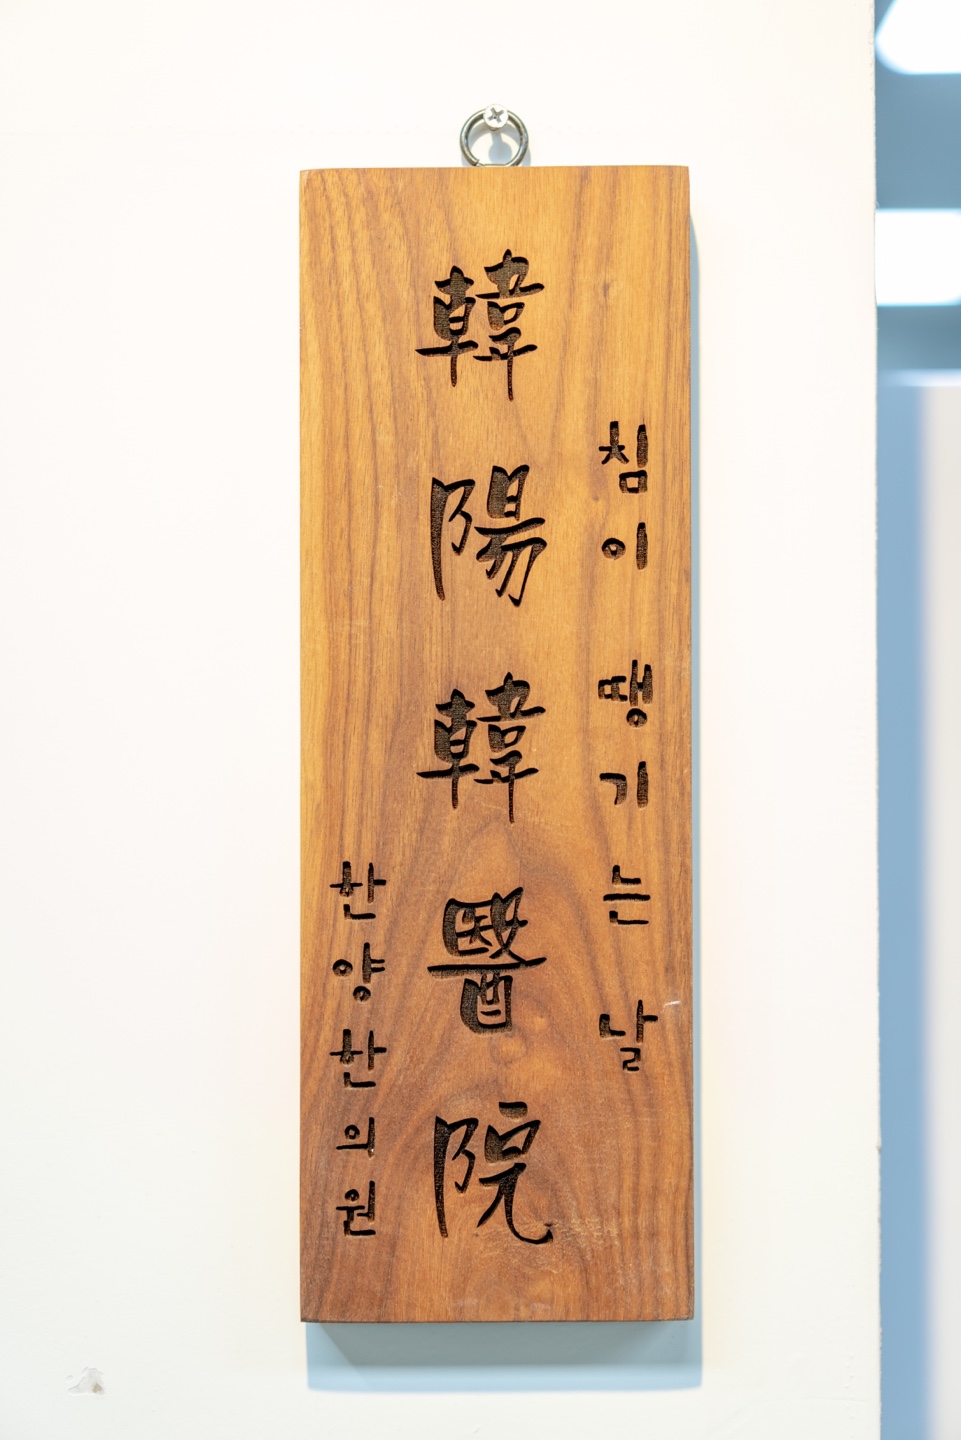 침이 땡기는 날
韓陽韓醫院
한양한의원